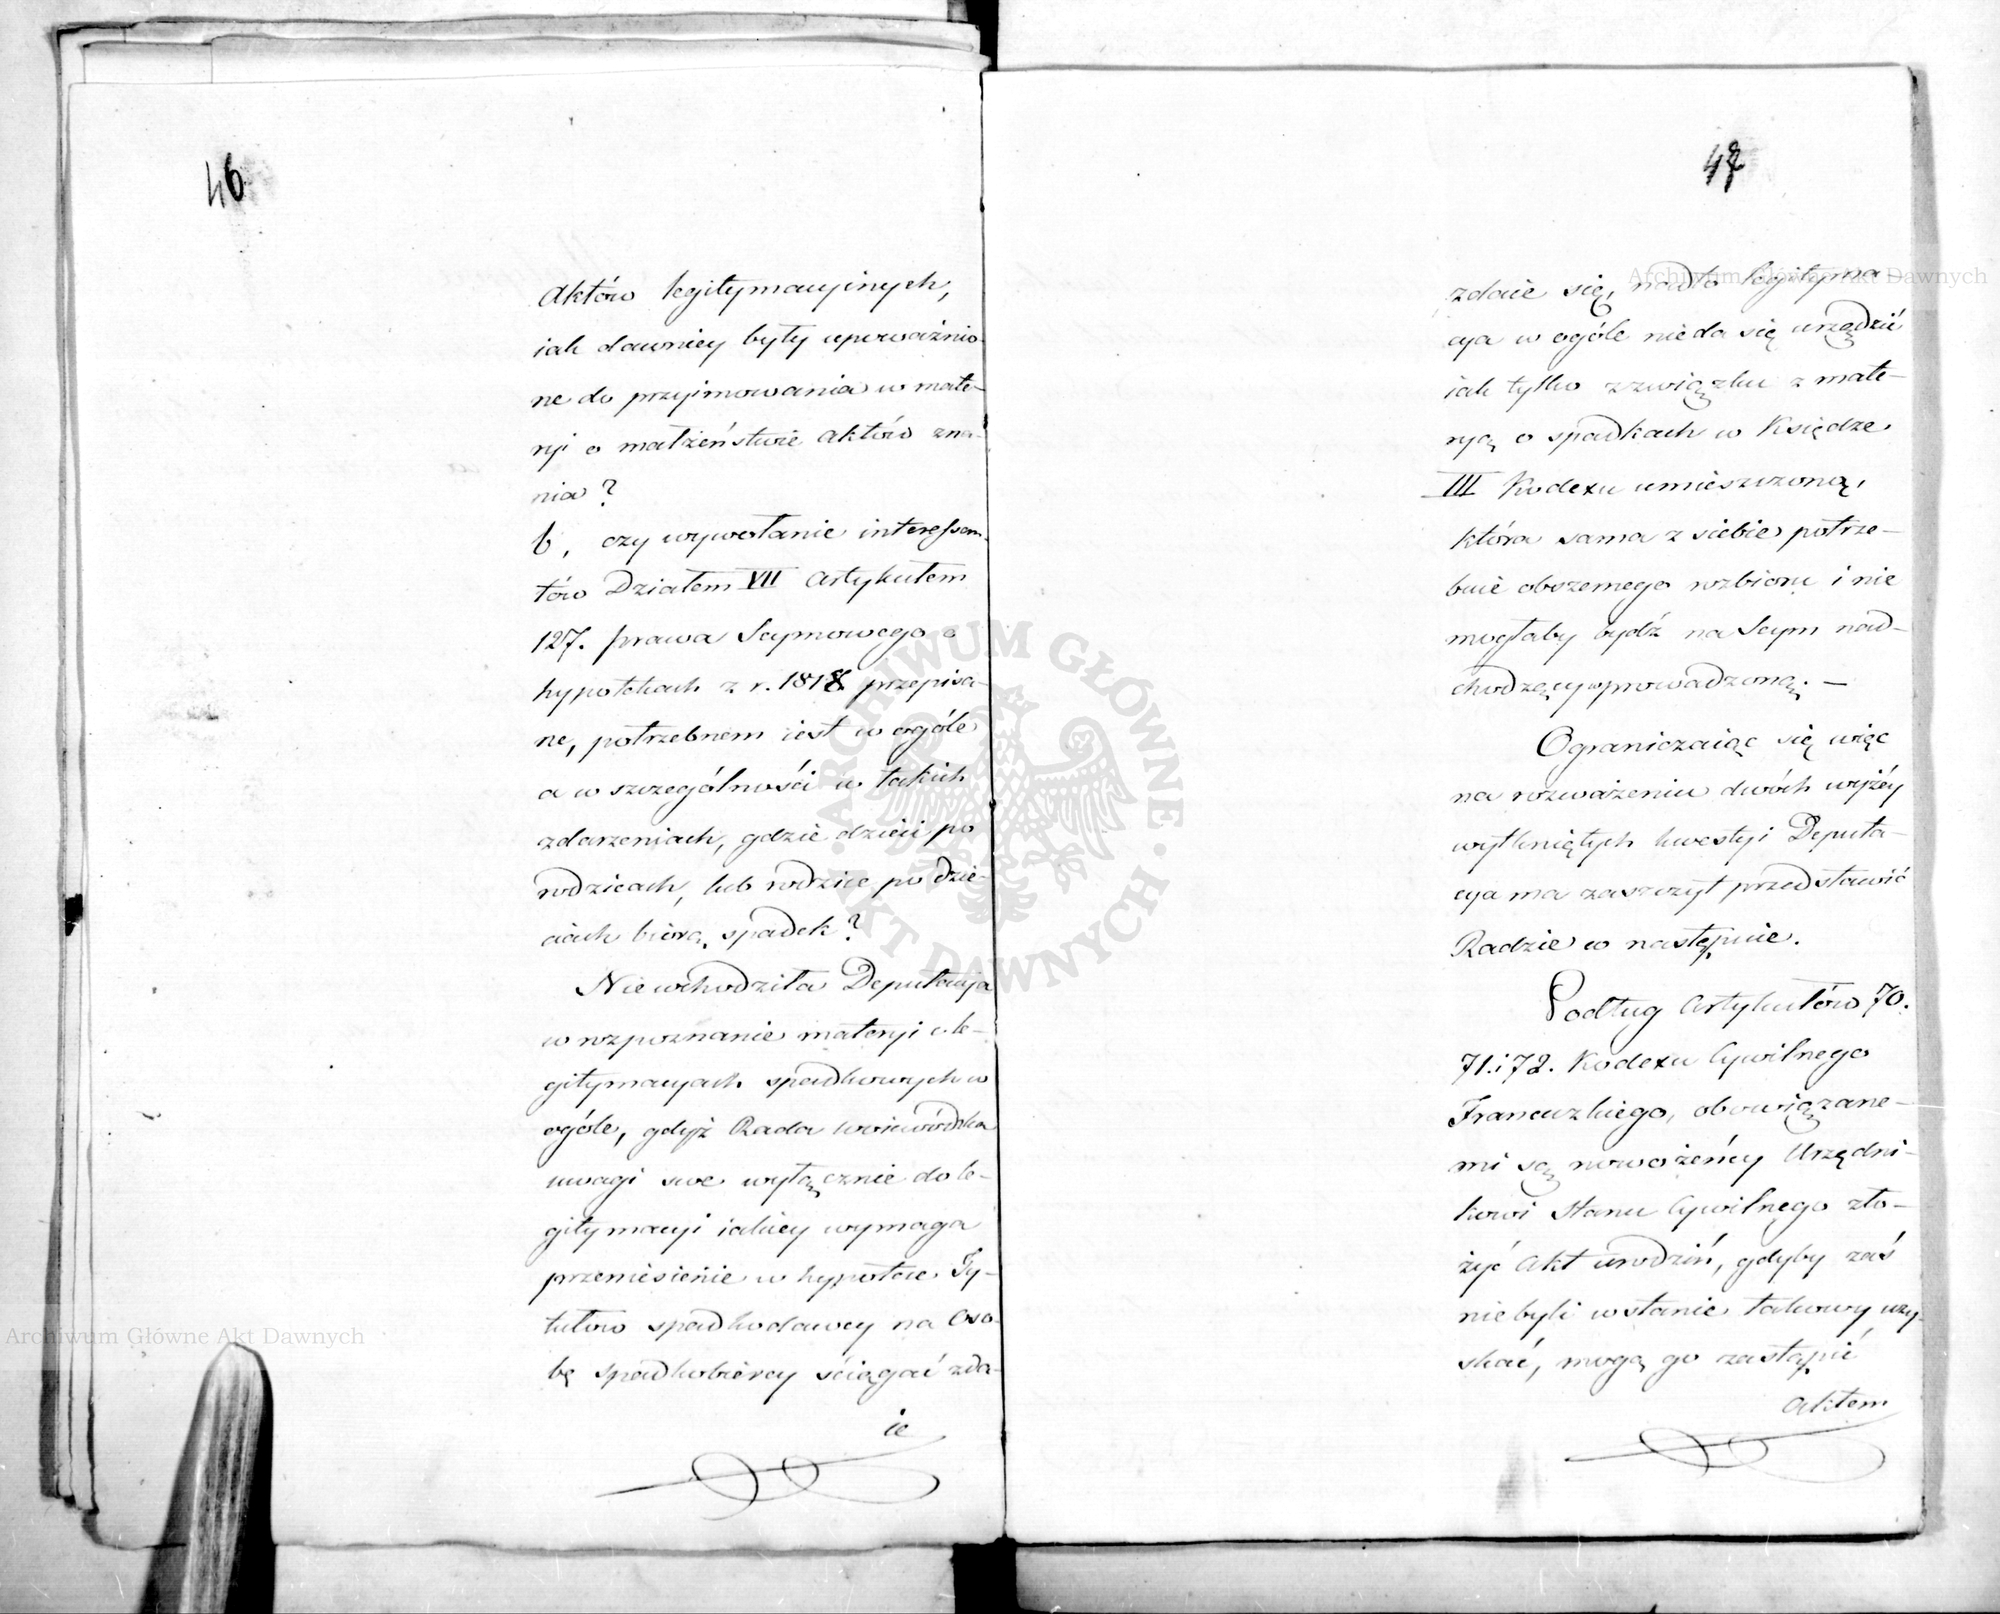 46
Aktów legitymacyinych,
iak dawniey były upoważnio-
ne do przyimowania w mate-
ryi o małżeństwie aktów zna-
nia?
b, czy wywołanie interessen-
tów Działem VII Artykułem
127. prawa Seymowego o
hypotekach z r. 1818 przepisa-
ne, potrzebnem iest w ogóle
a w szczególności w takich
zdarzeniach, gdzie dzieci po
rodzicach, lub rodzice po dzie-
ciach biorą spadek?
Nie wchodziła Deputacya
w rozpoznanie materyi o le-
gitymacyach spadkowych w
ogóle, gdyż Rada Woiewódzka
uwagi swe wyłącznie do le-
gitymacyi iakiey wymaga
przeniesienie w hypotece Ty-
tułów spadkodawcy na Oso-
bę spadkobiercy ściągać zda-
ie
47
zdaie się, nadto legityma
cya w ogóle nie da się urządzić
iak tylko z związku z mate-
ryą o spadkach w Księdze
III Kodexu umieszczoną,
która sama z siebie potrze-
buie obszernego rozbioru i nie
mogłaby bydź na Seym nad-
chodzący wprowadzoną. —
Ograniczaiąc się więc
na rozważeniu dwóch wyżéy
wytkniętych kwestyi Deputa-
cya ma zaszczyt przedstawić
Radzie co następuie.
Podług Artykułów 70.
71. i 72. Kodexu Cywilnego
Francuzkiego, obowiązane-
mi są nowożeńcy Urzędni-
kowi Stanu Cywilnego zło-
żyć Akt urodzin, gdyby zaś
nie byli w stanie takowy uzy-
skać, mogą go zastąpić
aktem
Archiwum Główne Akt Dawnych
Archiwum Główne Akt Dawnych
ARCHIWUM GŁÓWNE · AKT DAWNYCH ·